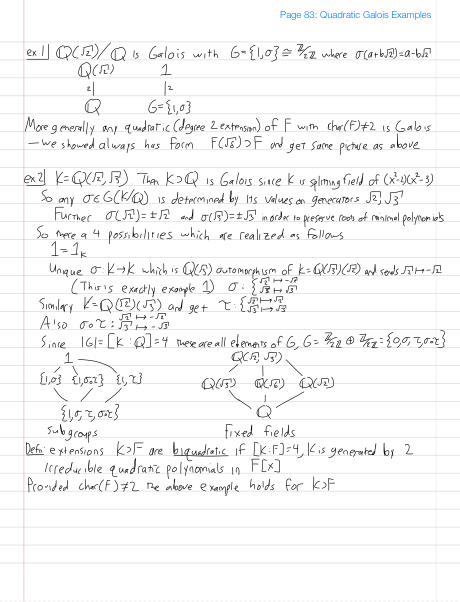 Page 83: Quadratic Galois Examples
ex 1 | Q(√2)/Q is Galois with G={1,σ}≅ℤ/2ℤ where σ(a+b√2)=a-b√2
Q(√2) 1
2| |2
Q G={1,σ}
More generally any quadratic (degree 2 extension) of F with char(F)≠2 is Galois
- we showed always has form F(√δ)⊃F and get same picture as above
ex 2 | K=Q(√2,√3) Then K⊃Q is Galois since K is splitting field of (x²-2)(x²-3)
So any σ∈G(K/Q) is determined by its values on generators √2,√3
Further σ(√2)=±√2 and σ(√3)=±√3 in order to preserve roots of minimal polynomials
So there a 4 possibilities which are realized as follows
1=1_K
Unique σ:K→K which is Q(√3) automorphism of K=Q(√3)(√2) and sends √2↦-√2
(This is exactly example 1) σ: {√2↦-√2 √3↦√3
Similary K=Q(√2)(√3) and get τ: {√2↦√2 √3↦-√3
Also σ∘τ: √2↦-√2 √3↦-√3
Since |G|=[K:Q]=4 these are all elements of G, G=ℤ/2ℤ⊕ℤ/2ℤ={0,σ,τ,σ∘τ}
1 Q(√2,√3)
{1,σ} {1,σ∘τ} {1,τ} Q(√3) Q(√6) Q(√2)
{1,σ,τ,σ∘τ} Q
Subgroups Fixed fields
Defn: extensions K⊃F are biquadratic if [K:F]=4, K is generated by 2
irreducible quadratic polynomials in F[x]
Provided char(F)≠2 the above example holds for K⊃F